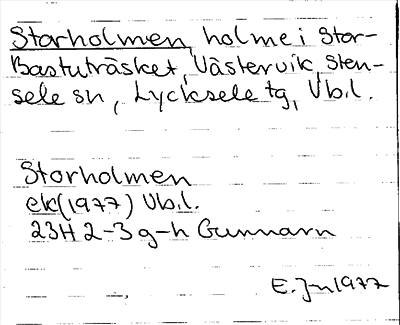 Storholmen, holme i Stor-
Bastuträsket, Västervik, Sten-
sele sn, Lycksele tg, Vb.l.
Storholmen
ek(1977) Vb.l.
23H 2-3 g-h Gunnarn
E. Jn 1977